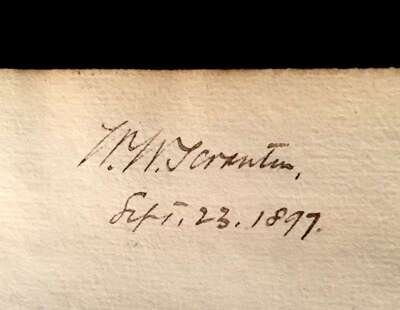 W. W. Scranton,
Sept. 23. 1897.